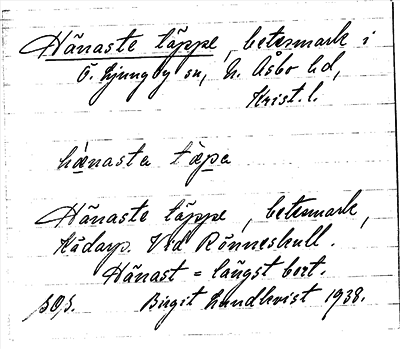 Hänaste täppe, betesmark i
Ö. Ljungby sn, N. Åsbo hd,
Krist. l.
hǽnasta tæpa
Hänaste täppe, betesmark,
Vid Rönneskull.
Hänast = längst bort.
Birgit Lundkvist 1938.